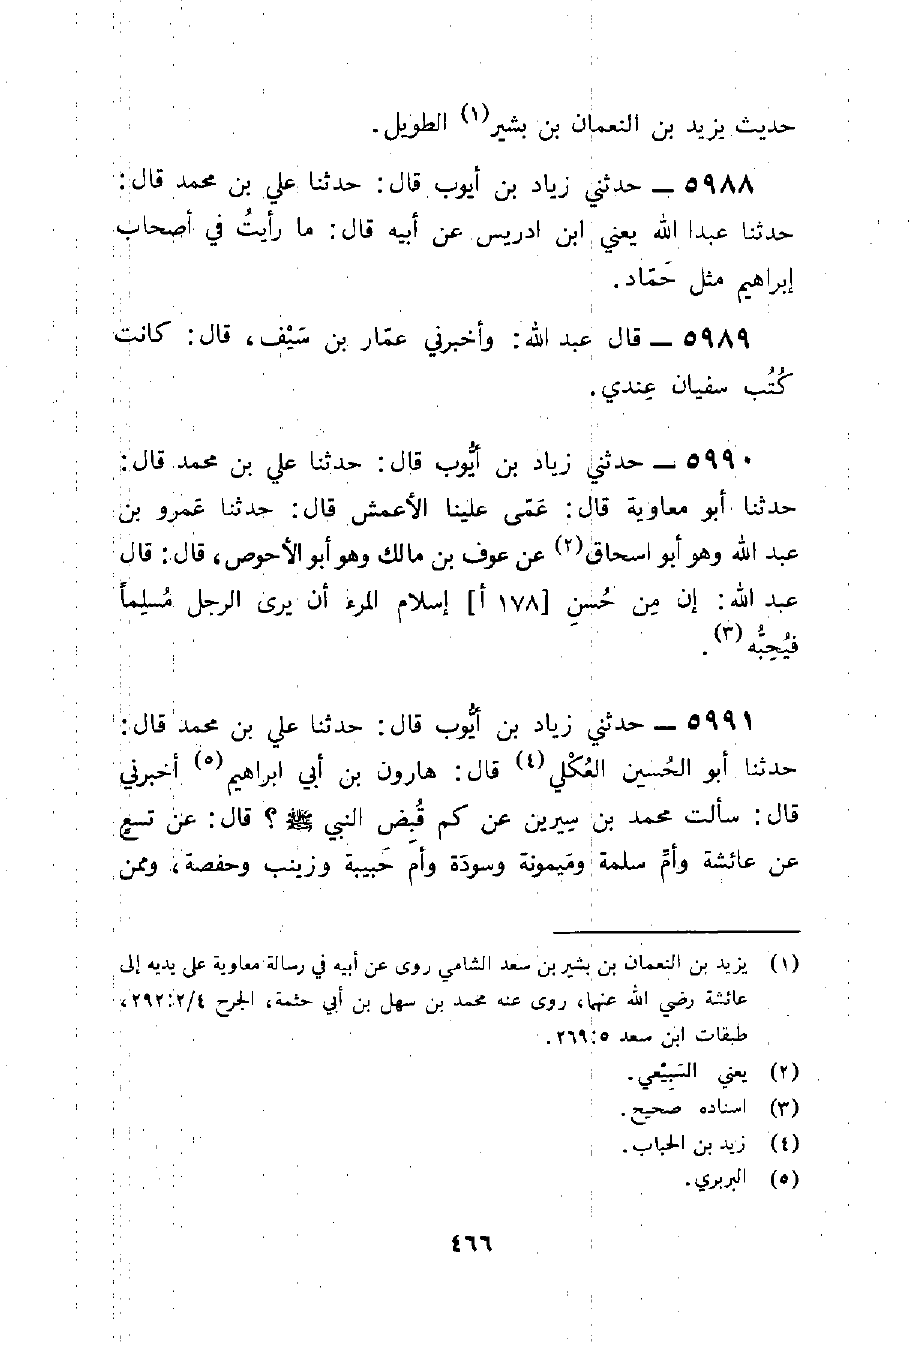 حديث يزيد بن النعمان بن بشير(١) الطويل.
٥٩٨٨ ــ حدثني زياد بن أيوب قال: حدثنا علي بن محمد قال:
حدثنا عبدا الله يعني ابن ادريس عن أبيه قال: ما رأيتُ في أصحاب
إبراهيم مثل حَمّاد.
٥٩٨٩ ــ قال عبد الله: وأخبرني عمّار بن سَيْف، قال: كانت
كُتُب سفيان عِندي.
٥٩٩٠ ــ حدثني زياد بن أيُّوب قال: حدثنا علي بن محمد قال:
حدثنا أبو معاوية قال: عَمّى علينا الأعمش قال: حدثنا عَمرو بن
عبد الله وهو أبو اسحاق(٢) عن عوف بن مالك وهو أبو الأحوص، قال: قال
عبد الله: إن مِن حُسنِ [١٧٨ أ] إسلام المرء أن يرى الرجل مُسلِماً
فيُحِبُّه(٣).
٥٩٩١ ــ حدثني زياد بن أيُّوب قال: حدثنا علي بن محمد قال:
حدثنا أبو الحُسين العُكْلي(٤) قال: هارون بن أبي ابراهيم(٥) أخبرني
قال: سألت محمد بن سِيرين عن كم قُبِض النبي ﷺ؟ قال: عن تسعٍ
عن عائشة وأمِّ سلمة ومَيمونة وسودَة وأم حَبيبة وزينب وحفصة، وممن
(١) يزيد بن النعمان بن بشير بن سعد الشامي روى عن أبيه في رسالة معاوية على يديه إلى
عائشة رضي الله عنها، روى عنه محمد بن سهل بن أبي حثمة، الجرح ٢٩٢:٢/٤،
طبقات ابن سعد ٢٦٩:٥.
(٢) يعني السَّبِيْعي.
(٣) اسناده صحيح.
(٤) زيد بن الحباب.
(٥) البربري.
٤٦٦